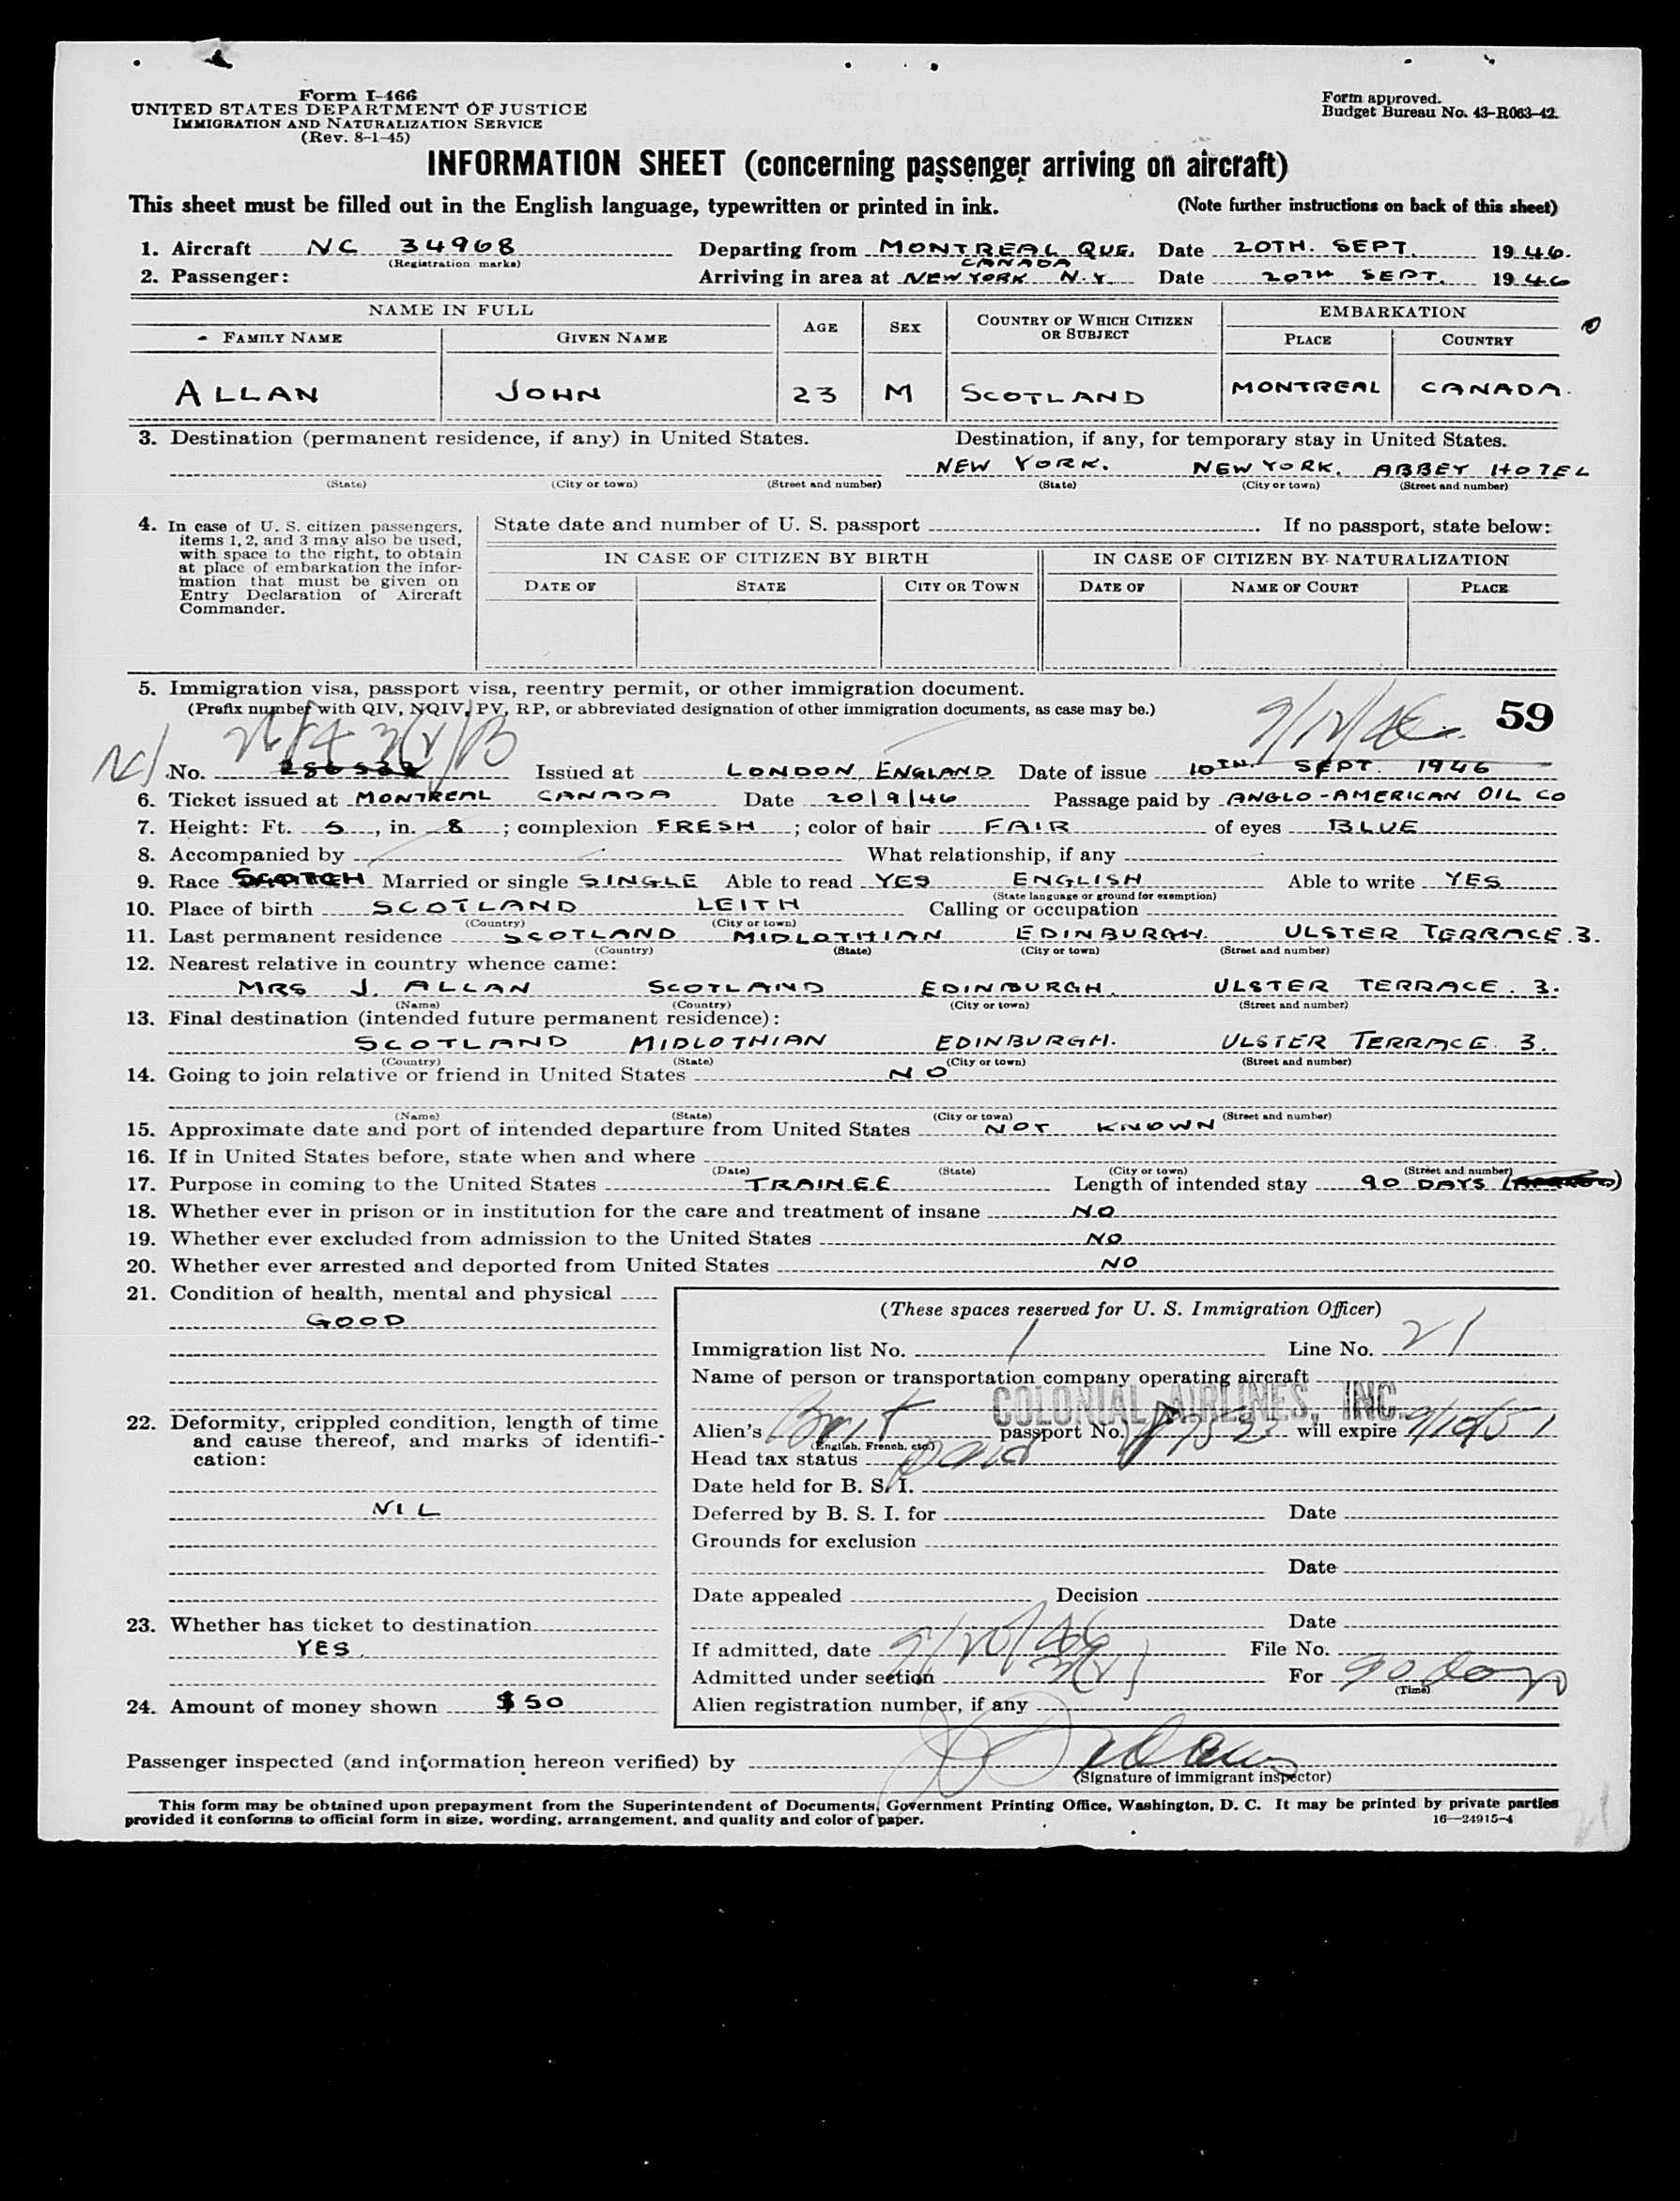 Form I-466
UNITED STATES DEPARTMENT OF JUSTICE
IMMIGRATION AND NATURALIZATION SERVICE
(Rev. 8-1-45)
Form approved.
Budget Bureau No. 43-R063-42.
INFORMATION SHEET (concerning passenger arriving on aircraft)
This sheet must be filled out in the English language, typewritten or printed in ink. (Note further instructions on back of this sheet)
1. Aircraft NC 34968 Departing from MONTREAL QUE. CANADA Date 20TH. SEPT. 1946.
(Registration marks)
2. Passenger: Arriving in area at NEW YORK N.Y. Date 20TH SEPT. 1946
NAME IN FULL AGE SEX COUNTRY OF WHICH CITIZEN OR SUBJECT EMBARKATION
FAMILY NAME GIVEN NAME PLACE COUNTRY
ALLAN JOHN 23 M SCOTLAND MONTREAL CANADA.
3. Destination (permanent residence, if any) in United States. Destination, if any, for temporary stay in United States.
NEW YORK. NEW YORK. ABBEY HOTEL
(State) (City or town) (Street and number) (State) (City or town) (Street and number)
4. In case of U. S. citizen passengers, items 1, 2, and 3 may also be used, with space to the right, to obtain at place of embarkation the information that must be given on Entry Declaration of Aircraft Commander.
State date and number of U. S. passport If no passport, state below:
IN CASE OF CITIZEN BY BIRTH IN CASE OF CITIZEN BY NATURALIZATION
DATE OF STATE CITY OR TOWN DATE OF NAME OF COURT PLACE
5. Immigration visa, passport visa, reentry permit, or other immigration document.
(Prefix number with QIV, NQIV, PV, RP, or abbreviated designation of other immigration documents, as case may be.)
59
No. Issued at LONDON, ENGLAND Date of issue 10TH. SEPT. 1946
6. Ticket issued at MONTREAL CANADA Date 20/9/46 Passage paid by ANGLO-AMERICAN OIL CO
7. Height: Ft. 5, in. 8; complexion FRESH; color of hair FAIR of eyes BLUE
8. Accompanied by What relationship, if any
9. Race SCOTCH Married or single SINGLE Able to read YES ENGLISH Able to write YES
(State language or ground for exemption)
10. Place of birth SCOTLAND LEITH Calling or occupation
(Country) (City or town)
11. Last permanent residence SCOTLAND MIDLOTHIAN EDINBURGH. ULSTER TERRACE. 3.
(Country) (State) (City or town) (Street and number)
12. Nearest relative in country whence came:
MRS J. ALLAN SCOTLAND EDINBURGH. ULSTER TERRACE. 3.
(Name) (Country) (City or town) (Street and number)
13. Final destination (intended future permanent residence):
SCOTLAND MIDLOTHIAN EDINBURGH. ULSTER TERRACE. 3.
(Country) (State) (City or town) (Street and number)
14. Going to join relative or friend in United States NO
(Name) (State) (City or town) (Street and number)
15. Approximate date and port of intended departure from United States NOT KNOWN
16. If in United States before, state when and where
(Date) (State) (City or town) (Street and number)
17. Purpose in coming to the United States TRAINEE Length of intended stay 90 DAYS
18. Whether ever in prison or in institution for the care and treatment of insane NO
19. Whether ever excluded from admission to the United States NO
20. Whether ever arrested and deported from United States NO
21. Condition of health, mental and physical
GOOD
22. Deformity, crippled condition, length of time and cause thereof, and marks of identification:
NIL
23. Whether has ticket to destination
YES.
24. Amount of money shown $50
(These spaces reserved for U. S. Immigration Officer)
Immigration list No. 1 Line No. 21
Name of person or transportation company operating aircraft
COLONIAL AIRLINES, INC.
Alien's Brit passport No. will expire 9/10/51
(English, French, etc.)
Head tax status Paid
Date held for B. S. I.
Deferred by B. S. I. for Date
Grounds for exclusion
Date
Date appealed Decision
Date
If admitted, date 9/20/46 File No.
Admitted under section 3(2) For 90 days
(Time)
Alien registration number, if any
Passenger inspected (and information hereon verified) by
(Signature of immigrant inspector)
This form may be obtained upon prepayment from the Superintendent of Documents, Government Printing Office, Washington, D. C. It may be printed by private parties
provided it conforms to official form in size, wording, arrangement, and quality and color of paper. 16—24915-4